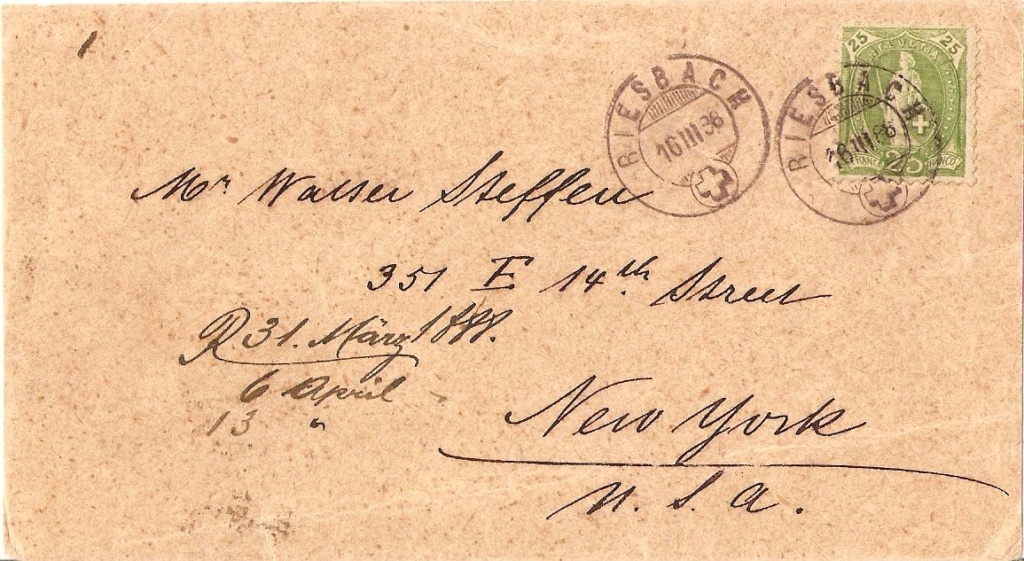 1
RIESBACH
16 III 88
RIESBACH
16 III 88
25 HELVETIA 25
FRANCO 25 FRANCO
Mr Walter Steffen
351 E 14th Street
R 31. März 1888.
6 April
13 "
New York
U. S. A.